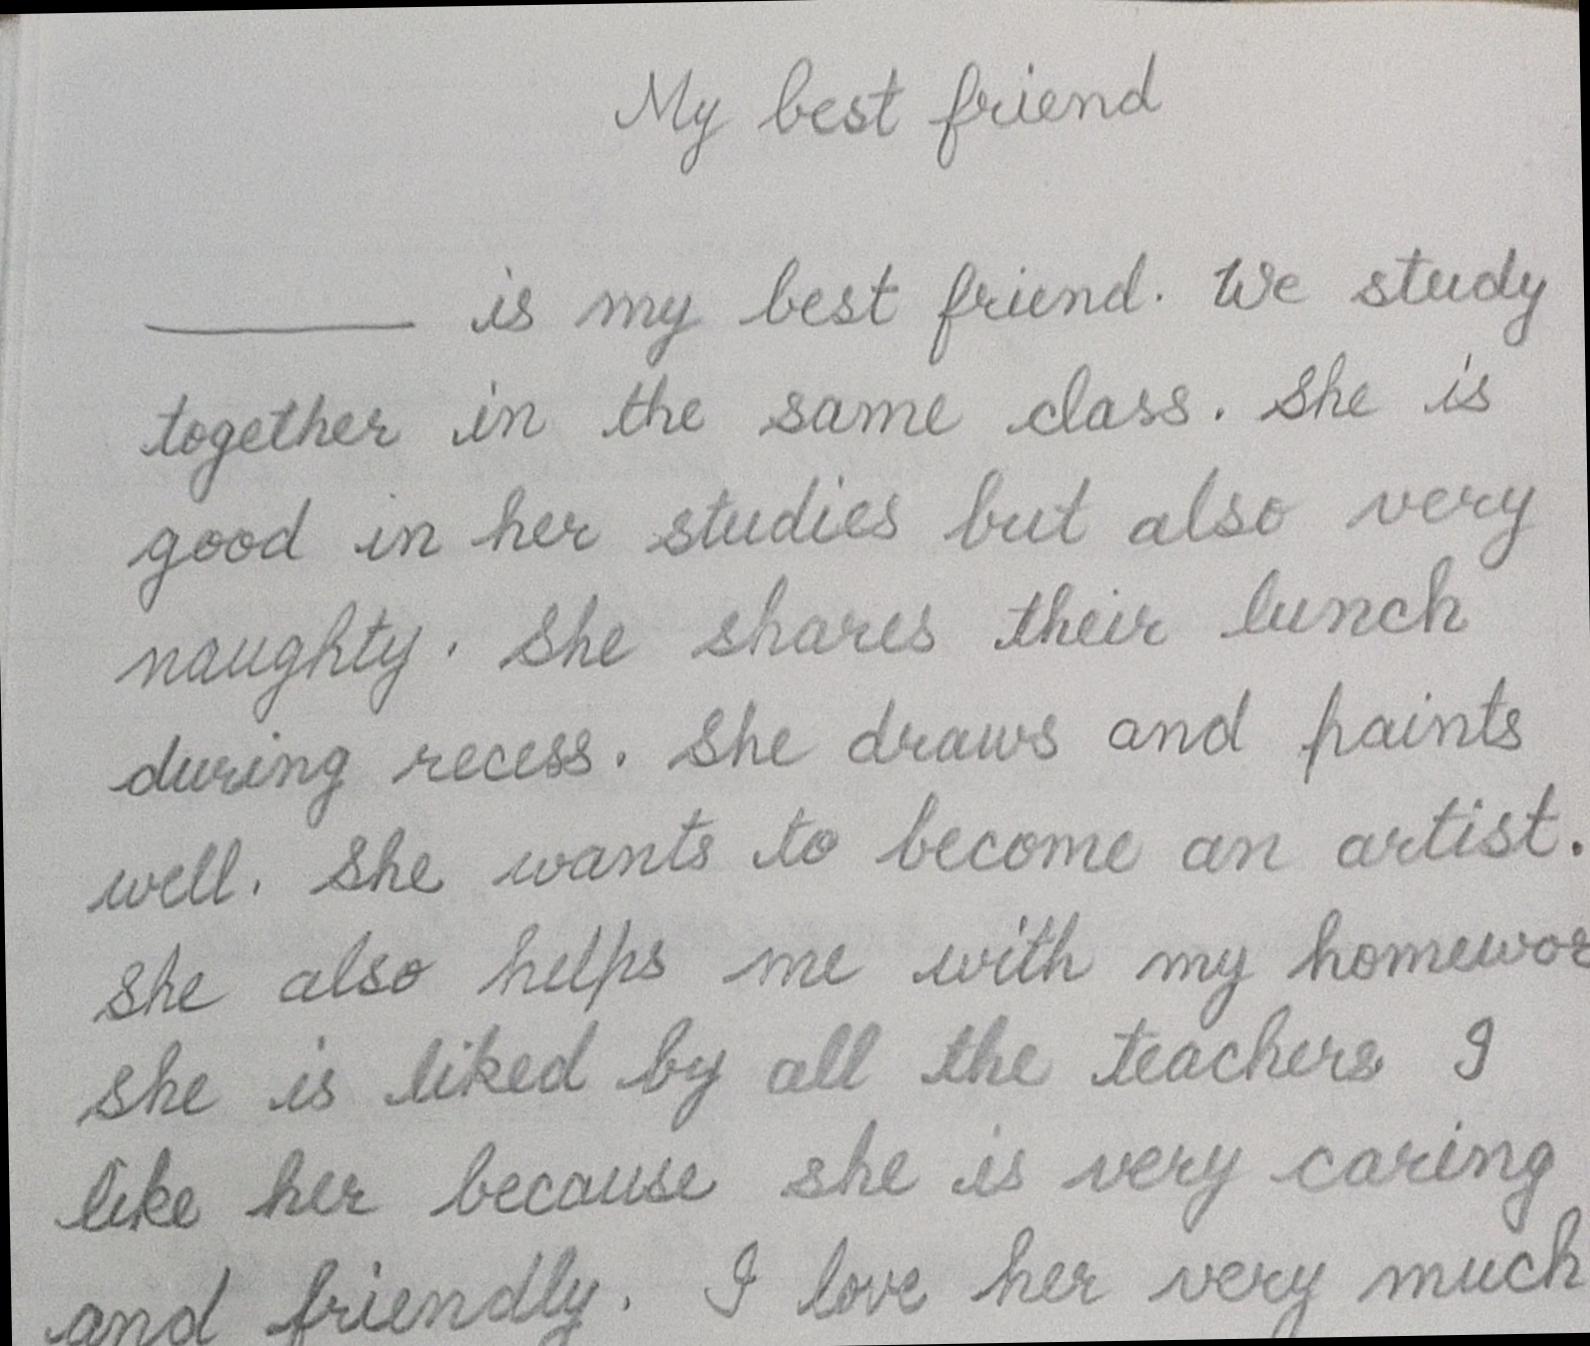 My best friend
_______ is my best friend. We study
together in the same class. She is
good in her studies but also very
naughty. She shares their lunch
during recess. She draws and paints
well. She wants to become an artist.
She also helps me with my homewor
She is liked by all the teachers I
like her because she is very caring
and friendly. I love her very much